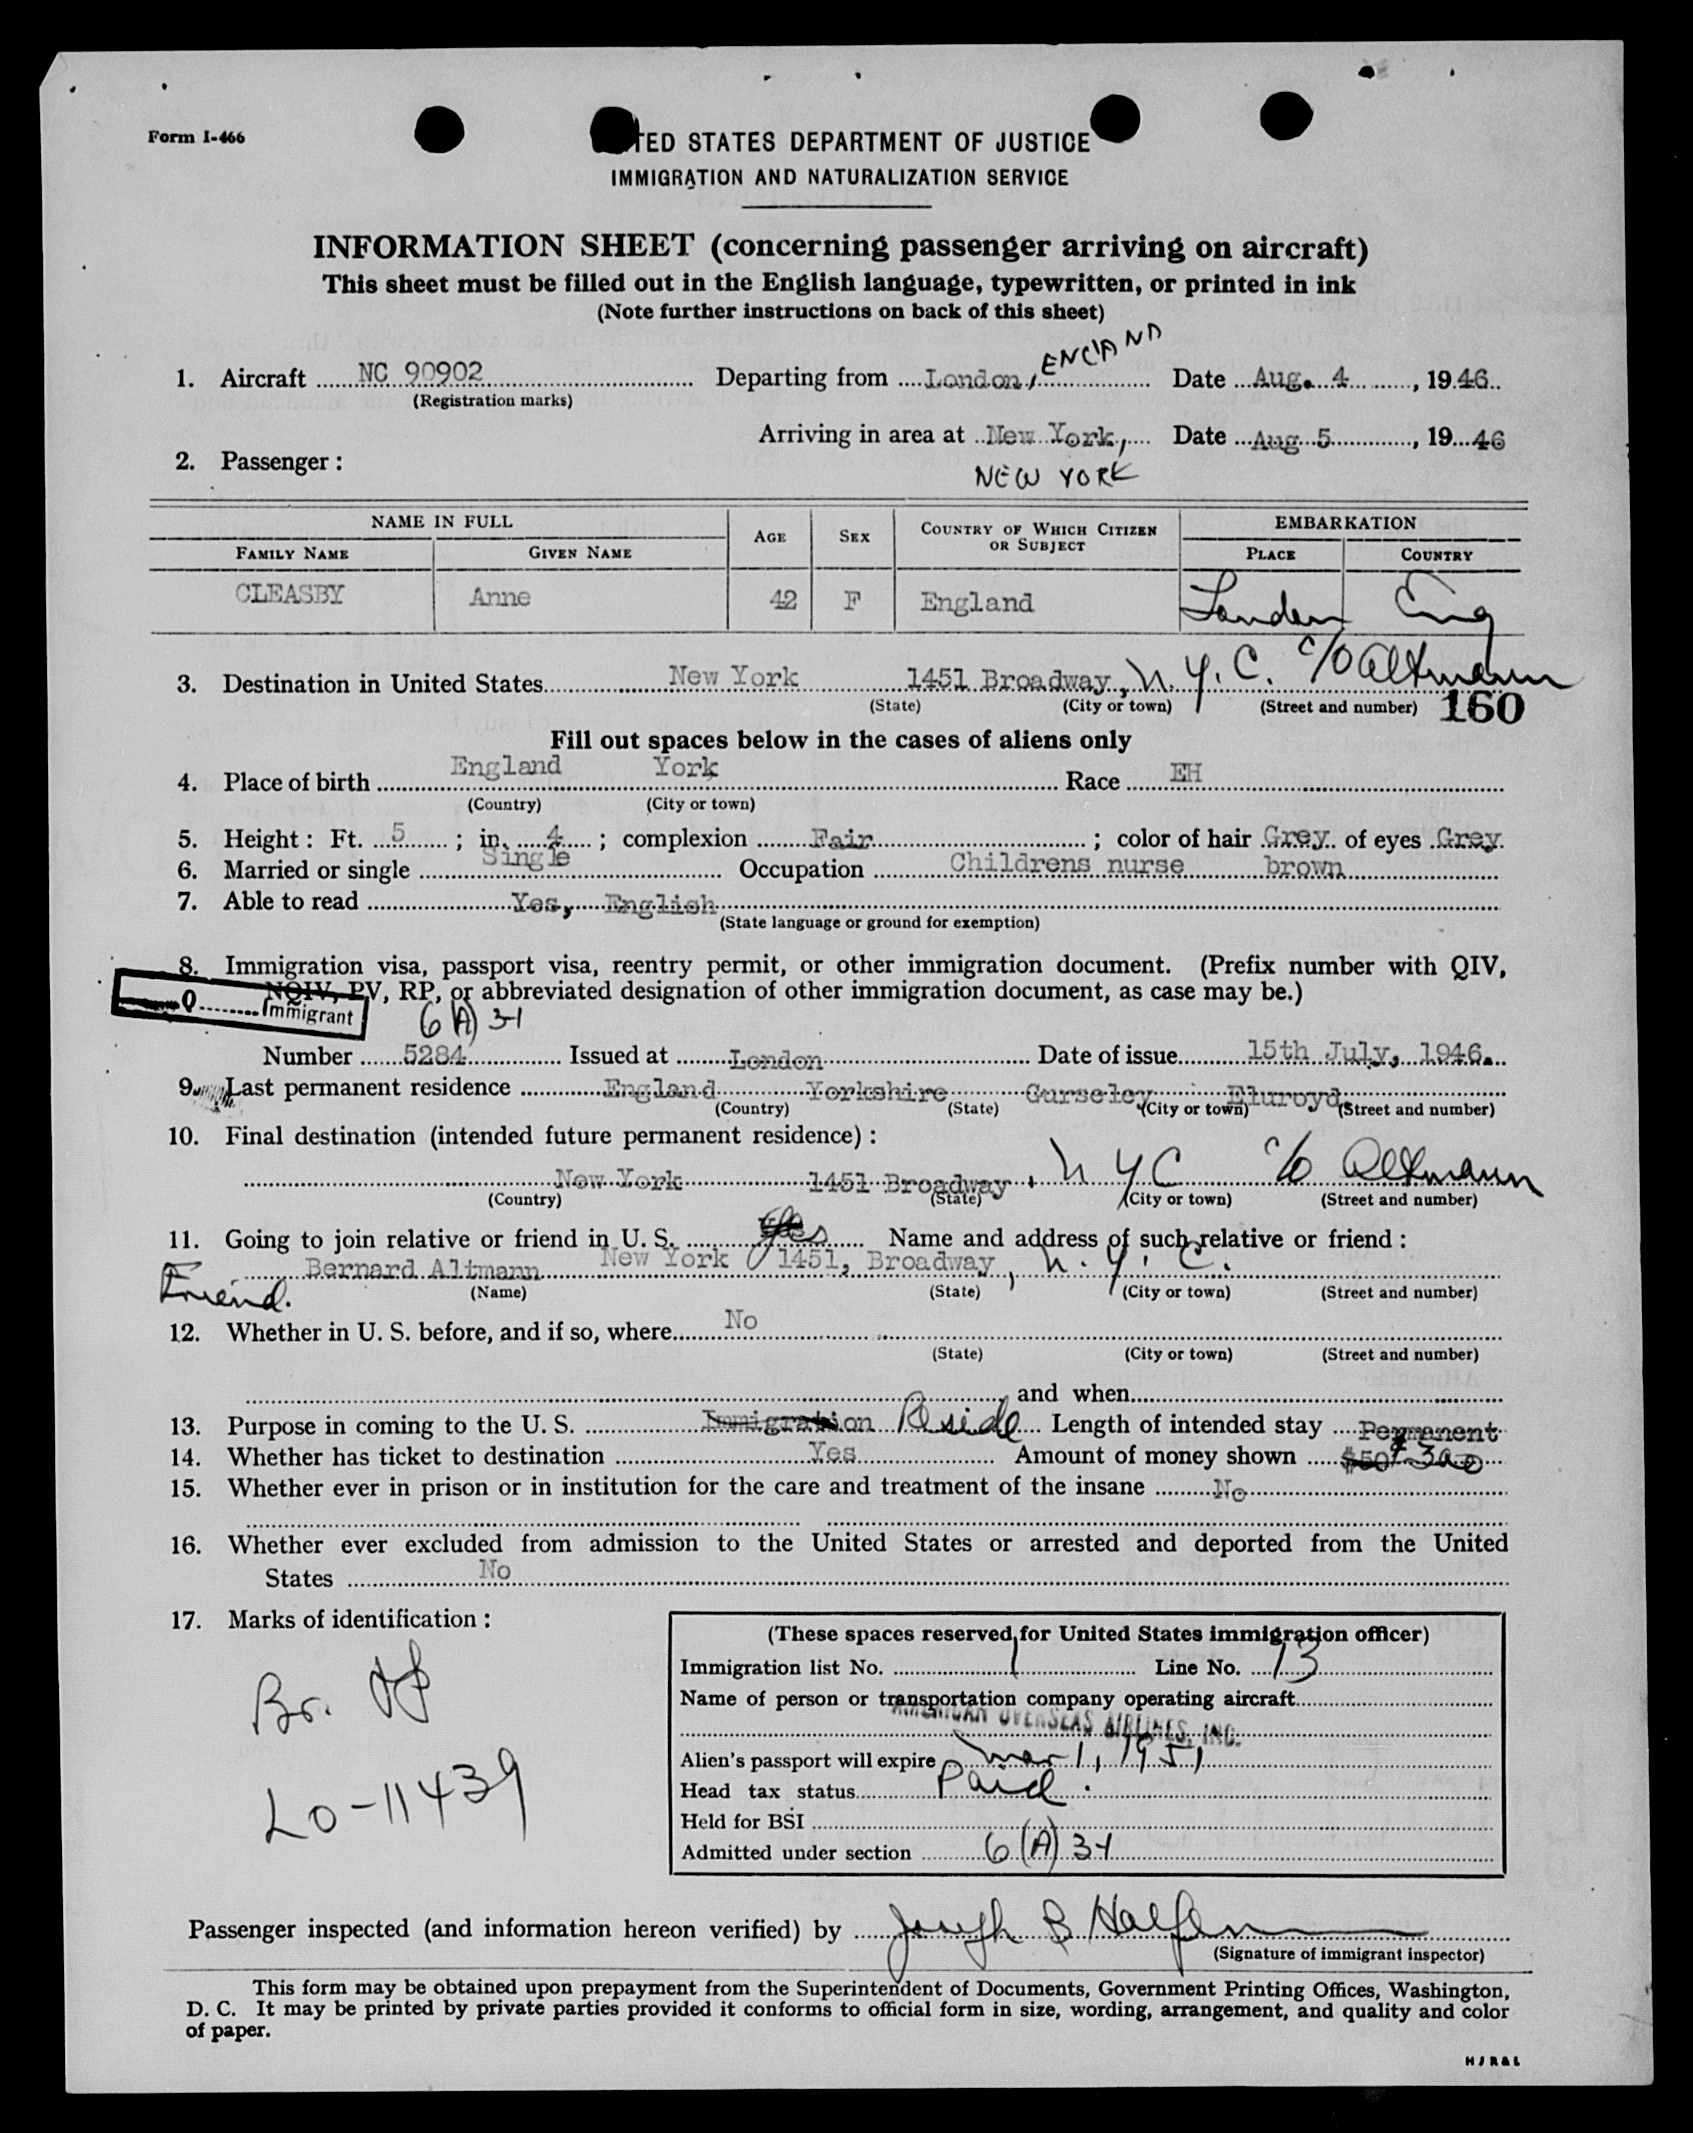 Form I-466
TED STATES DEPARTMENT OF JUSTICE
IMMIGRATION AND NATURALIZATION SERVICE
INFORMATION SHEET (concerning passenger arriving on aircraft)
This sheet must be filled out in the English language, typewritten, or printed in ink
(Note further instructions on back of this sheet)
1. Aircraft NC 90902 Departing from London, ENGLAND Date Aug. 4, 1946
(Registration marks)
Arriving in area at New York, Date Aug 5, 1946
2. Passenger: NEW YORK
NAME IN FULL AGE SEX COUNTRY OF WHICH CITIZEN OR SUBJECT EMBARKATION
FAMILY NAME GIVEN NAME PLACE COUNTRY
CLEASBY Anne 42 F England London Eng
3. Destination in United States New York 1451 Broadway, N.Y.C. c/o Altmann
(State) (City or town) (Street and number) 160
Fill out spaces below in the cases of aliens only
4. Place of birth England York Race EH
(Country) (City or town)
5. Height: Ft. 5; in. 4; complexion Fair; color of hair Grey of eyes Grey
6. Married or single Single Occupation Childrens nurse brown
7. Able to read Yes, English
(State language or ground for exemption)
8. Immigration visa, passport visa, reentry permit, or other immigration document. (Prefix number with QIV,
NQIV, PV, RP, or abbreviated designation of other immigration document, as case may be.)
Q Immigrant 6(A)31
Number 5284 Issued at London Date of issue 15th July, 1946.
9. Last permanent residence England Yorkshire Gurseley Eluroyd
(Country) (State) (City or town) (Street and number)
10. Final destination (intended future permanent residence):
New York 1451 Broadway, N Y C c/o Altmann
(Country) (State) (City or town) (Street and number)
11. Going to join relative or friend in U. S. Yes Name and address of such relative or friend:
Friend. Bernard Altmann New York 1451, Broadway, N.Y.C.
(Name) (State) (City or town) (Street and number)
12. Whether in U. S. before, and if so, where No
(State) (City or town) (Street and number)
and when
13. Purpose in coming to the U. S. Immigration Reside Length of intended stay Permanent
14. Whether has ticket to destination Yes Amount of money shown $50 $300
15. Whether ever in prison or in institution for the care and treatment of the insane No
16. Whether ever excluded from admission to the United States or arrested and deported from the United
States No
17. Marks of identification:
Br.
LO-11439
(These spaces reserved for United States immigration officer)
Immigration list No. 1 Line No. 13
Name of person or transportation company operating aircraft
AMERICAN OVERSEAS AIRLINES, INC.
Alien's passport will expire Mar 1, 1951
Head tax status Paid.
Held for BSI
Admitted under section 6(A)31
Passenger inspected (and information hereon verified) by Joseph B
(Signature of immigrant inspector)
This form may be obtained upon prepayment from the Superintendent of Documents, Government Printing Offices, Washington,
D. C. It may be printed by private parties provided it conforms to official form in size, wording, arrangement, and quality and color
of paper.
H J R & L